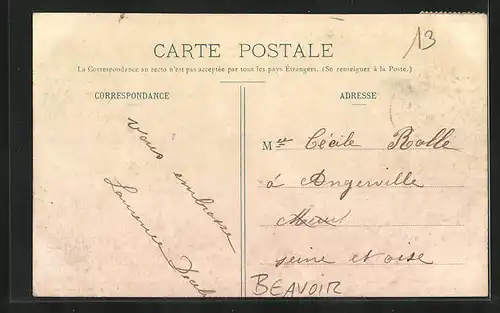 13
CARTE POSTALE
La Correspondance au recto n'est pas acceptée par tous les pays Étrangers. (Se renseigner à la Poste.)
CORRESPONDANCE
vous embrasse
Laurence
ADRESSE
Melle Cécile Rolle
à Angerville
seine et oise
BEAVOIR